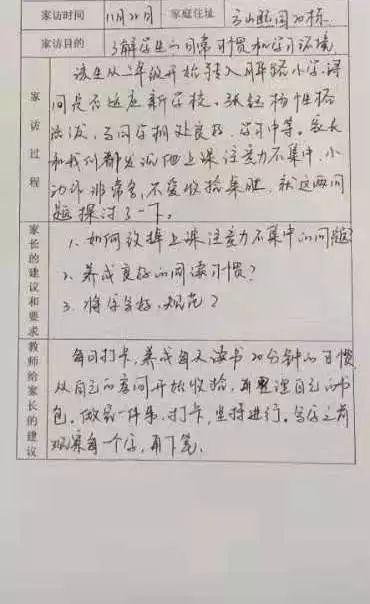 家访时间 11月22日 家庭住址
家访目的 了解学生的日常习惯和学习环境
家访过程
该生从二年级开始转入 小学,询
问是否适应新学校。 性格
活泼,与同学相处良好,学习中等。家长
和我们都发现他上课注意力不集中,小
动作非常多,不爱收拾桌肚,就这两问
题探讨了一下。
家长的建议和要求
1、如何改掉上课注意力不集中的问题?
2、养成良好的阅读习惯?
3、将字写好,规范?
教师给家长的建议
每日打卡,养成每天读书20分钟的习惯,
从自己的房间开始收拾,再整理自己的书
包。做每一件事,打卡,坚持进行。写字之前
观察每一个字,再下笔。